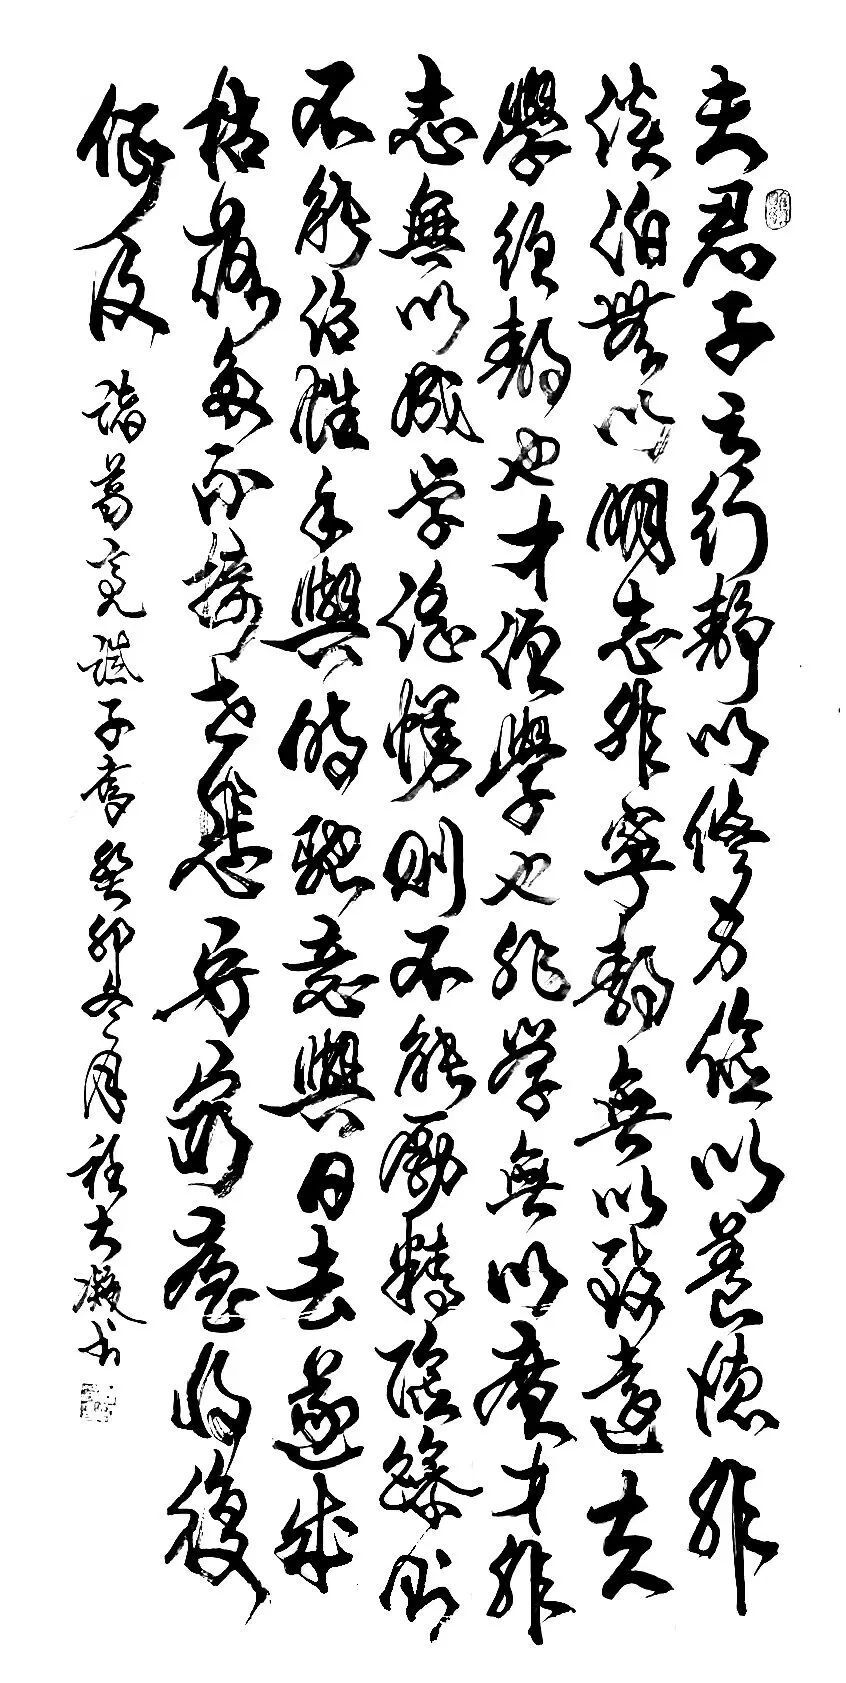 夫君子之行静以修身儉以養德非
淡泊無以明志非寧静無以致遠夫
學須静也才須學也非学無以廣才非
志無以成学淫慢則不能勵精險躁則
不能治性年與時馳意與日去遂成
枯落多不接世悲守窮廬將復
何及 諸葛亮誡子書 癸卯冬月 程大凝书